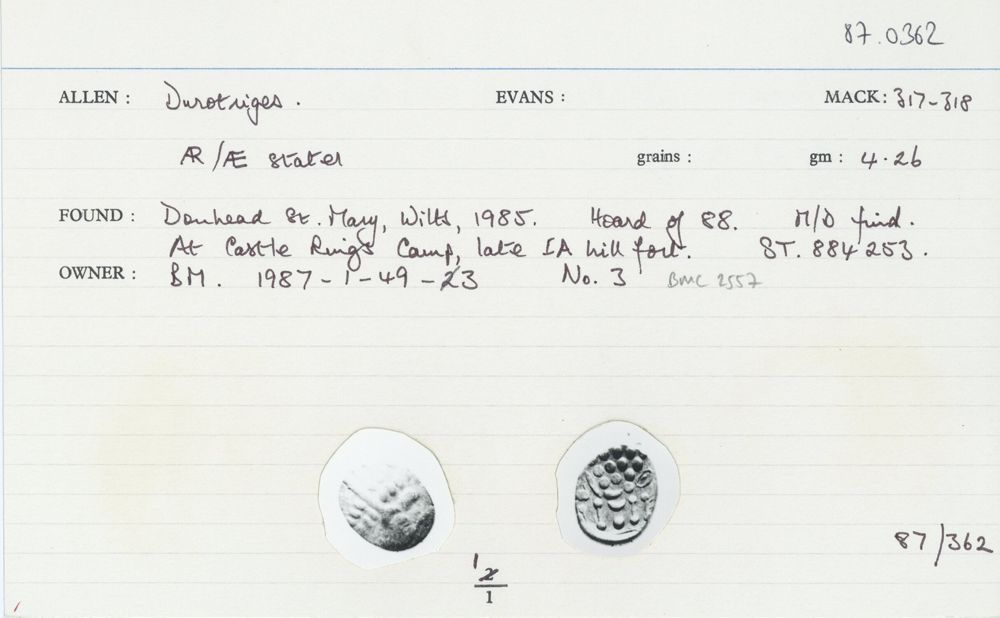 87.0362
ALLEN : Durotriges. EVANS : MACK: 317-318
ÆR/Æ stater grains : gm : 4.26
FOUND : Donhead St. Mary, Wilts, 1985. Hoard of 88. M/D find.
At Castle Rings Camp, late IA hill fort. ST. 884 253.
OWNER : BM. 1987-1-49-23 No. 3 BMC 2557
1 2
1
87/362